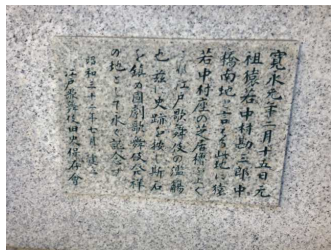 寛永元年二月十五日元
祖猿若中村勘三郎中
橋南地と言える此地に猿
若中村座の芝居櫓をあく
これ江戸歌舞伎の濫觴
也茲に史跡を按し斯石
を鎮め國劇歌舞伎発祥
の地として永く記念す
昭和三十二年七月建之
江戸歌舞伎旧史保存會